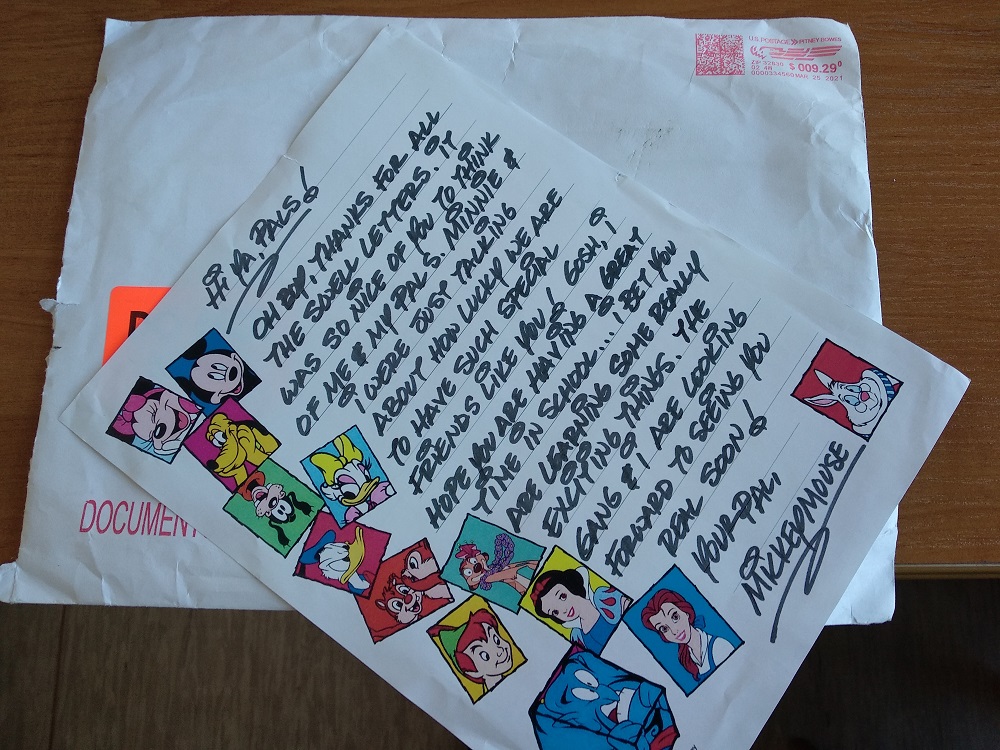 U.S. POSTAGE PITNEY BOWES
ZIP 32830
02 4W
$ 009.29⁰
0000334550 MAR 25 2021
DOCUMENT
HI YA, PALS!
OH BOY, THANKS FOR ALL
THE SWELL LETTERS. IT
WAS SO NICE OF YOU TO THINK
OF ME & MY PALS. MINNIE &
I WERE JUST TALKING
ABOUT HOW LUCKY WE ARE
TO HAVE SUCH SPECIAL
FRIENDS LIKE YOU! GOSH, I
HOPE YOU ARE HAVING A GREAT
TIME IN SCHOOL... I BET YOU
ARE LEARNING SOME REALLY
EXCITING THINGS. THE
GANG & I ARE LOOKING
FORWARD TO SEEING YOU
REAL SOON!
YOUR PAL,
MICKEY MOUSE